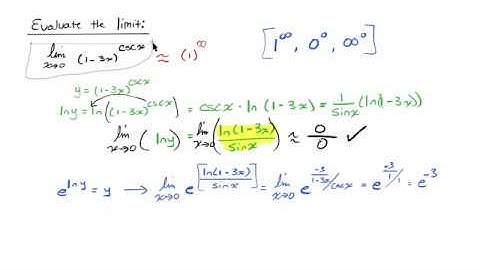 Evaluate the limit:
lim x→0 (1-3x)^cscx ≈ (1)^∞
[1^∞, 0^0, ∞^0]
y = (1-3x)^cscx
lny = ln(1-3x)^cscx = cscx · ln(1-3x) = 1/sinx (ln(1-3x))
lim x→0 (lny) = lim x→0 (ln(1-3x)/sinx) ≈ 0/0 ✓
e^lny = y → lim x→0 e^[ln(1-3x)/sinx] = lim x→0 e^(-3/1-3x/cosx) = e^(-3/1/1) = e^-3